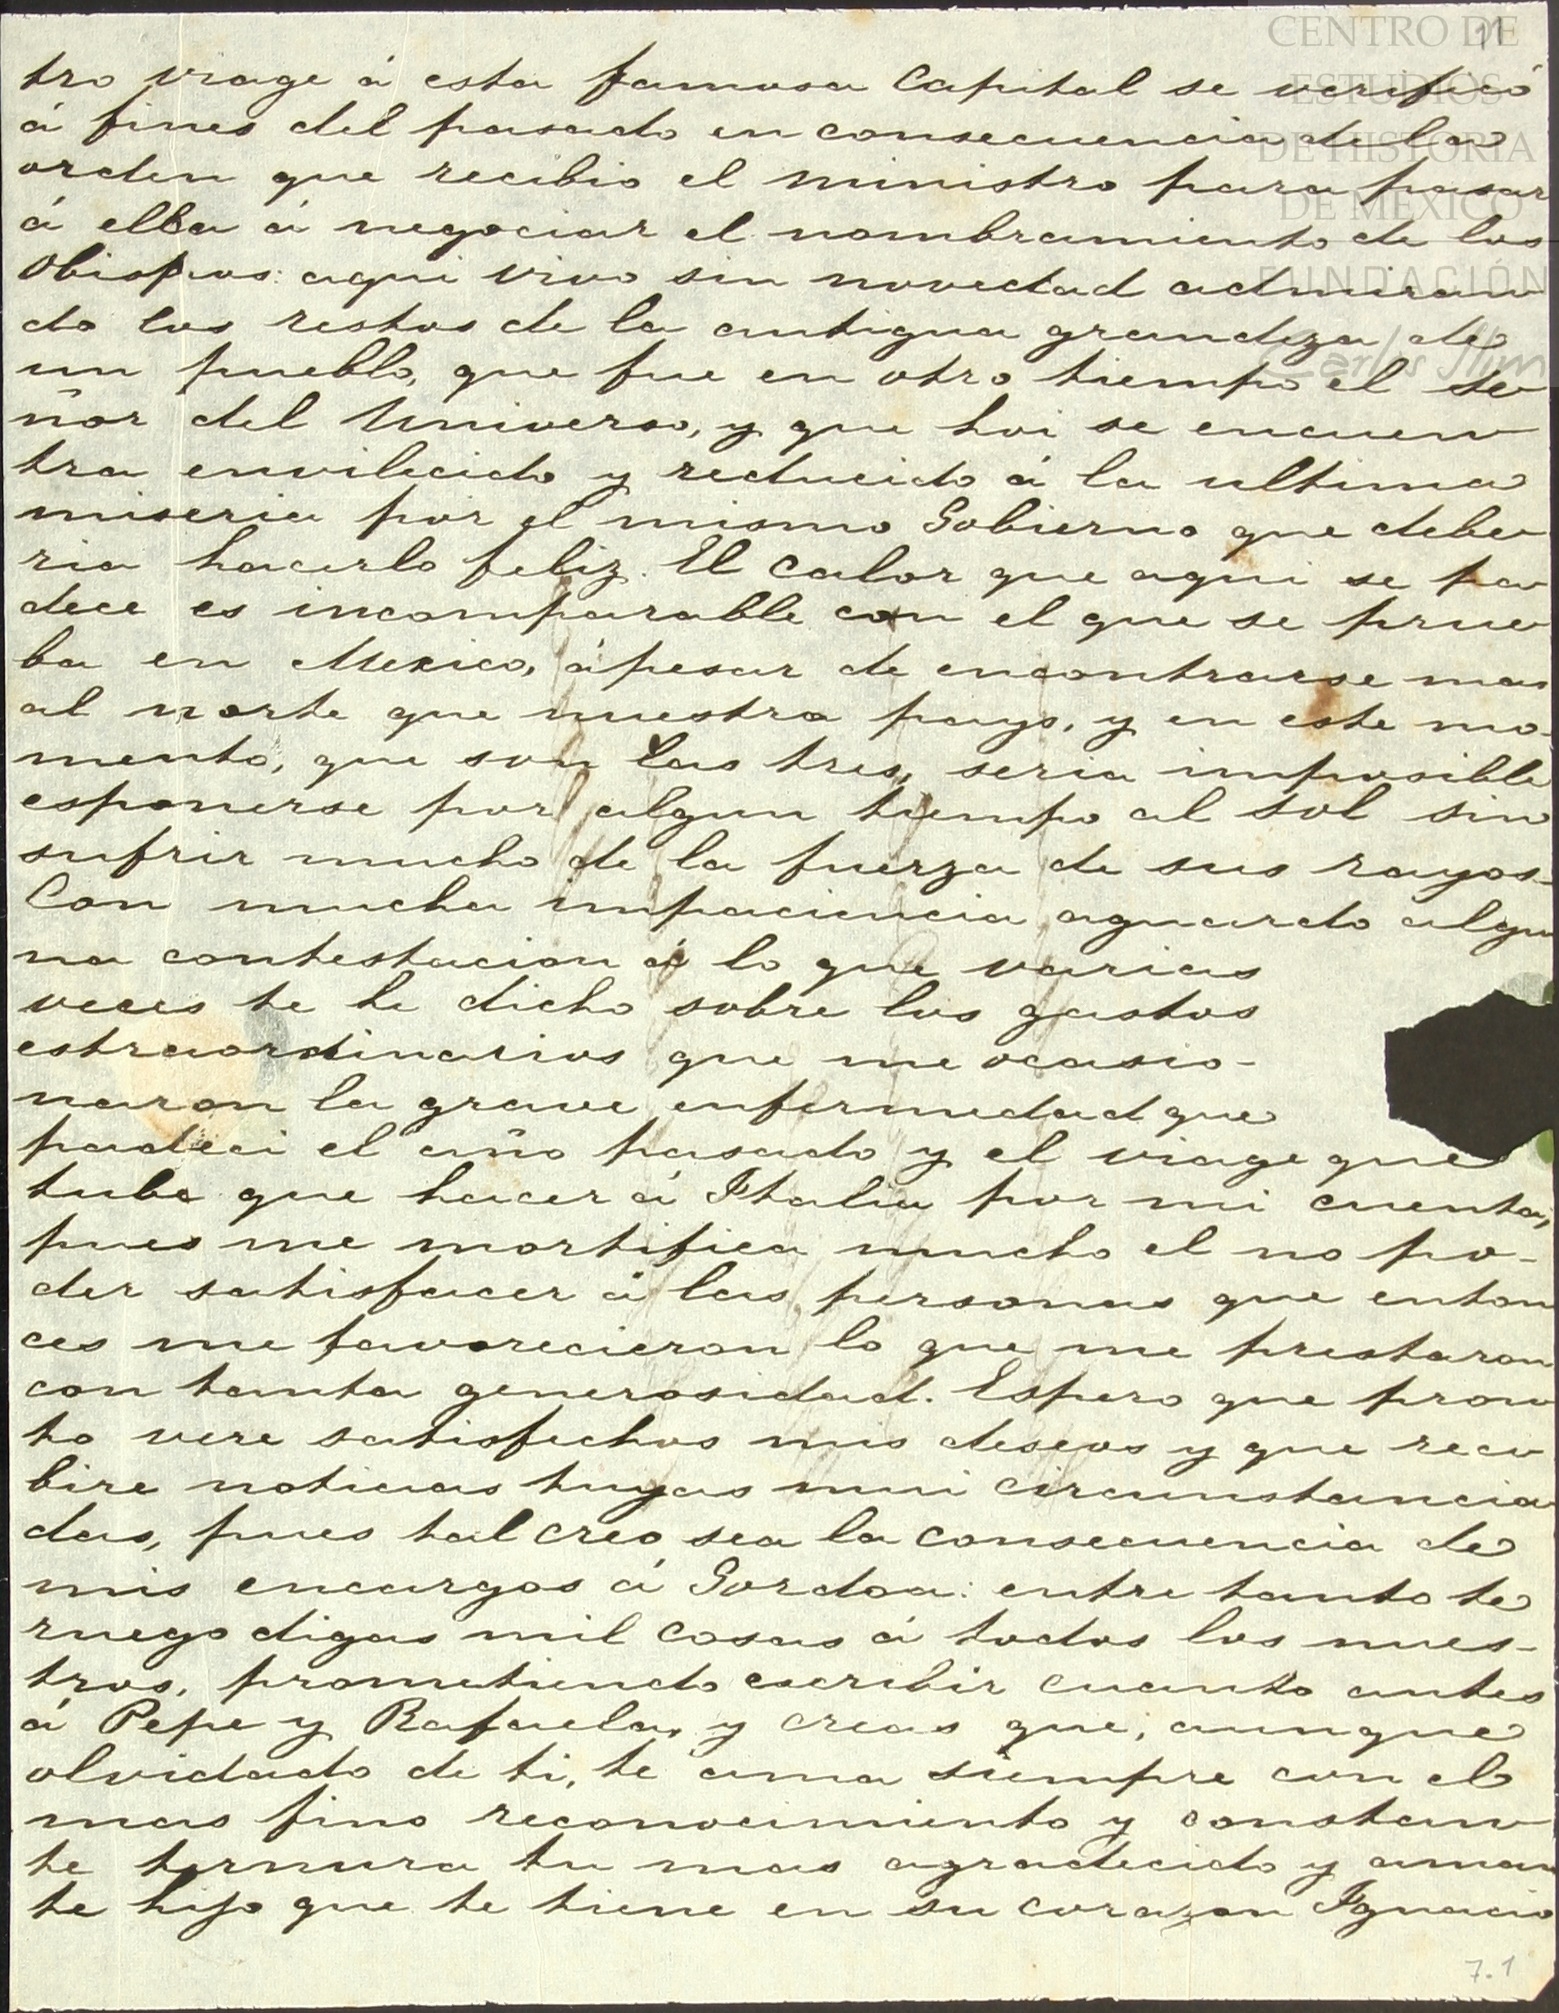 CENTRO DE
ESTUDIOS
DE HISTORIA
DE MEXICO
FUNDACIÓN
Carlos Slim
11
tro viage á esta famosa Capital se verificó
á fines del pasado en consecuencia de la
orden que recibio el ministro para pasar
á ella á negociar el nombramiento de los
Obispos: aqui vivo sin novedad admiran
do los restos de la antigua grandeza de
un pueblo, que fue en otro tiempo el se
ñor del Universo, y que hoi se encuen
tra envilecido y reducido á la ultima
miseria por el mismo Gobierno que debe
ria hacerlo feliz. El calor que aqui se pa
dece es incomparable con el que se prue
ba en Mexico, ápesar de encontrarse mas
al norte que nuestro pays, y en este mo-
mento, que son las tres, seria imposible
esponerse por algun tiempo al sol sin
sufrir mucho de la fuerza de sus rayos-
Con mucha impaciencia aguardo algu
na contestacion á lo que varias
veces te he dicho sobre los gastos
estraordinarios que me ocasio-
naron la grave enfermedad que
padeci el año pasado y el viage que
tube que hacer á Italia por mi cuenta,
pues me mortifica mucho el no po-
der satisfacer á las personas que enton
ces me favorecieron lo que me prestaron
con tanta generosidad. Espero que pron
to vere satisfechos mis deseos y que reci
bire noticias tuyas mui circunstancia
das, pues tal creo sea la consecuencia de
mis encargos á Gordoa: entre tanto te
ruego digas mil cosas á todos los nues-
tros, prometiendo escribir cuanto antes
á Pepe y Rafaela, y creas que, aunque
olvidado de ti, te ama siempre con el
mas fino reconocimiento y constan
te ternura tu mas agradecido y aman
te hijo que te tiene en su corazon Ignacio
7.1